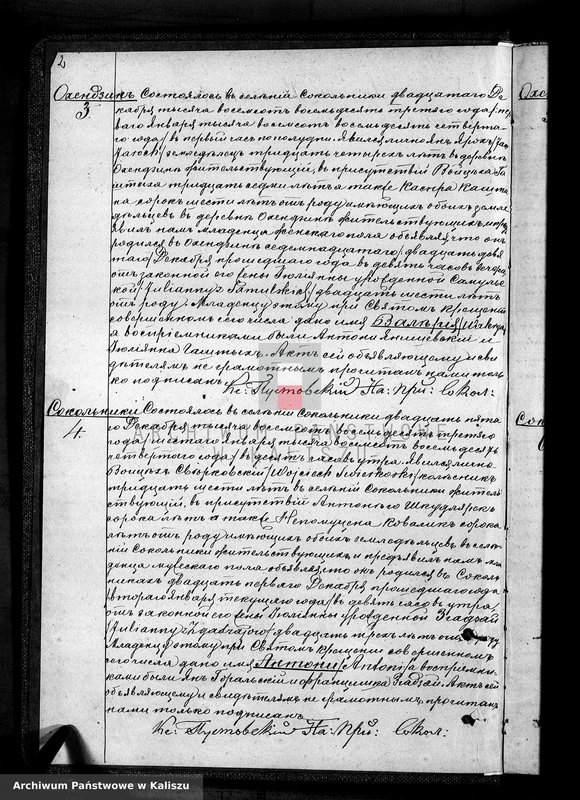 2
Охендзинъ Состоялось въ селеніи Сокольники двадцатаго Де-
3. кабря тысяча восемсотъ восемьдесятъ третяго года /пер-
ваго Января тысяча восемсотъ восемьдесятъ четверта-
го года/ въ первый часъ пополудни. Явился лично Янъ Ярохъ /Jan
Jaroch/ земледѣлецъ тридцать четырехъ лѣтъ въ деревни
Охендзинъ жительствующій, въ присутствіи Войцѣха
тридцать седми лѣтъ а также Каспра
сорокъ шести лѣтъ отъ роду имѣющихъ обоихъ земле-
дѣльцевъ въ деревни Охендзинъ жительствующихъ, и пред
явилъ намъ Младенца женскаго пола объявляя, что онъ
родился въ Охендзинѣ седемнадцатаго /двадцать девя
таго/ Декабря прошедшаго года въ девять часовъ вечера
отъ законной его жены Юліянны урожденной
/Julianny z двадцать шести лѣтъ
отъ роду. Младенцу этому при Святомъ крещеніи
совершенномъ сего числа дано имя Валерія
а воспріемниками были Антони Янишевскій и
Юліянна Актъ сей объявляющему и сви
дѣтелямъ не грамотнымъ прочитанъ нами толь
ко подписанъ.
Кс: Пустовскій На: При: Сокол:
Сокольники Состоялось въ селеніи Сокольники двадцать пята
4. го Декабря тысяча восемсотъ восемьдесятъ третяго
года /шестаго Января тысяча восемсотъ восемьдесятъ
четвертого года/ въ десять часовъ утра. Явился лично
Войцѣхъ Свѣрковскій /Wojciech Świerkoski/
тридцать шести лѣтъ въ селеніи Сокольники жителі
ствующій, въ присутствіи Антонього Шкудлярекъ
сорока лѣтъ а также Непомуцена Коваликъ сорока
лѣтъ отъ роду имѣющихъ обоихъ земледѣльцевъ въ селе-
ніи Сокольники жительствующихъ, и предъявилъ намъ мла
денца мужескаго пола объявляя, что онъ родился въ Соколь
никахъ двадцать перваго Декабря прошедшаго года
/втораго Января текущаго года/ въ девять часовъ утра,
отъ законной его жены Юліянны урожденной Згадзай
/Julianny двадцать трехъ лѣтъ отъ роду
Младенцу этому при Святомъ крещеніи совершенномъ
сего числа дано имя Антони /Antoni/ а воспріемни-
ками были Янъ Горальскій и Францишка Згадзай. Актъ сей
объявляющему и свидѣтелямъ не грамотнымъ, прочитанъ
нами только подписанъ
Кс: Пустовскій На: При: Сокол:
Archiwum Państwowe w Kaliszu